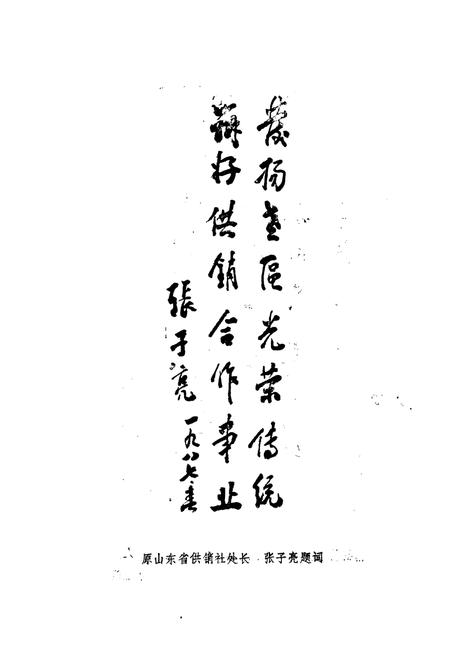 發扬老區光荣传統
辦好供销合作事业
張子亮
一九八七春
原山东省供销社处长 张子亮题词